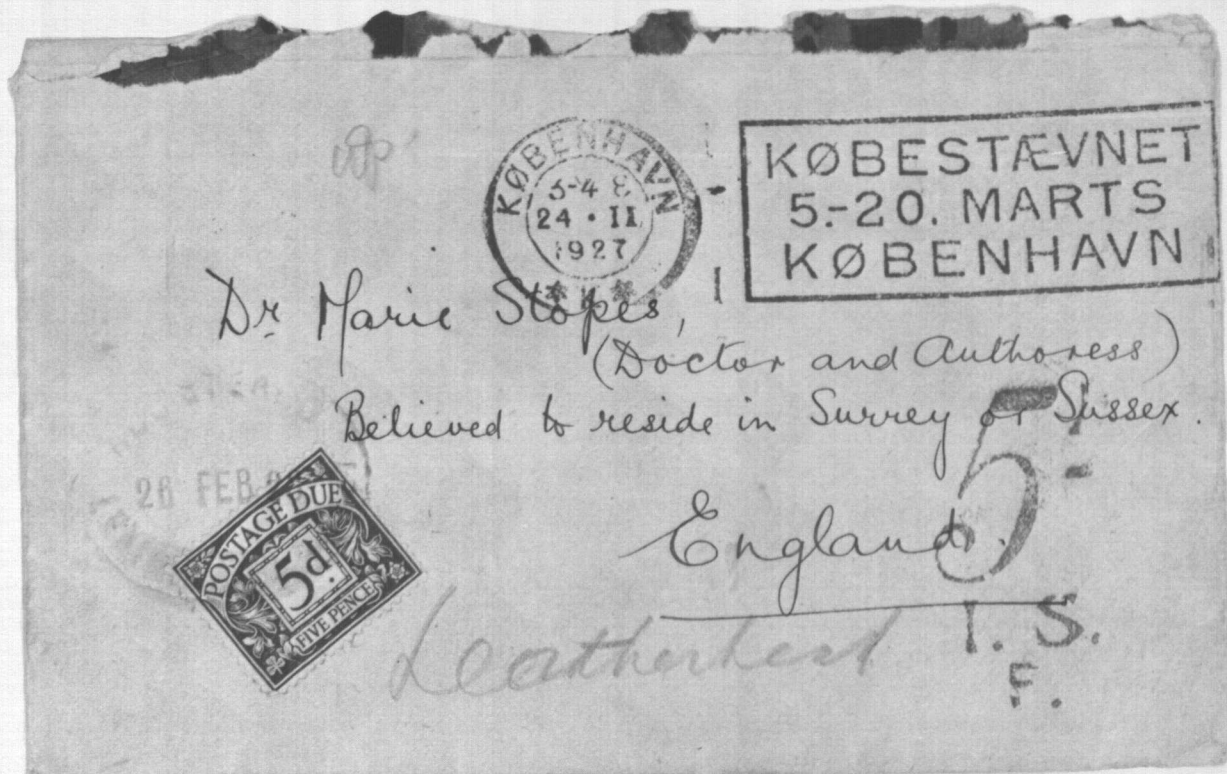 KØBENHAVN
3-4 E
24 · II
1927
KØBESTÆVNET
5.-20. MARTS
KØBENHAVN
Dr Marie Stopes,
(Doctor and Authoress)
Believed to reside in Surrey or Sussex.
England.
26 FEB
POSTAGE DUE
5d.
FIVE PENCE
Leatherhead
5
I. S.
F.